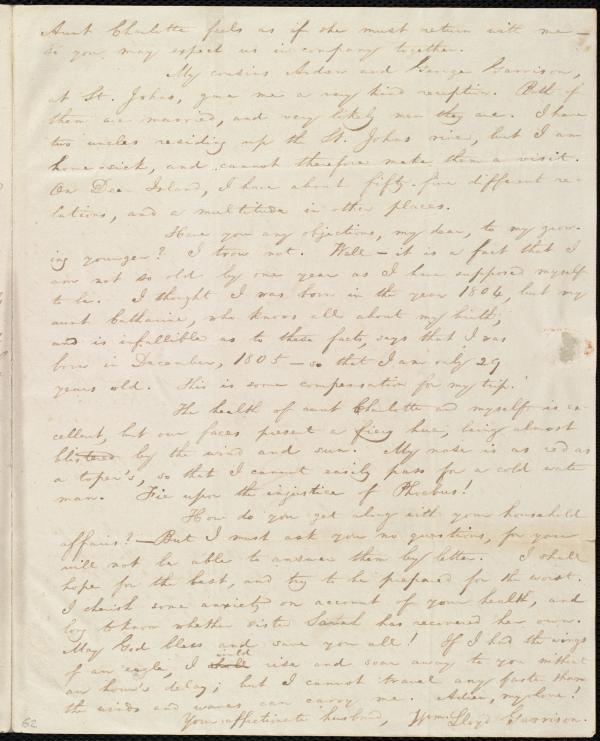 Aunt Charlotte feels as if she must return with me —
so you may expect us in company together.
My cousins Andrew and George Garrison,
at St. Johns, gave me a very kind reception. Both of
them are married, and very likely men they are. I have
two uncles residing up the St. Johns river, but I am
home-sick, and cannot therefore make them a visit.
On Deer Island, I have about fifty-five different re-
lations, and a multitude in other places.
Have you any objections, my dear, to my grow-
ing younger? I trow not. Well — it is a fact that I
am not so old by one year as I have supposed myself
to be. I thought I was born in the year 1804, but my
aunt Catharine, who knows all about my birth,
and is infallible as to these facts, says that I was
born in December, 1805 — so that I am only 29
years old. This is some compensation for my trip.
The health of aunt Charlotte and myself is ex-
cellent, but our faces present a fiery hue, being almost
blistered by the wind and sun. My nose is as red as
a toper's, so that I cannot easily pass for a cold water
man. Fie upon the injustice of Phoebus!
How do you get along with your household
affairs? — But I must ask you no questions, for you
will not be able to answer them by letter. I shall
hope for the best, and try to be prepared for the worst.
I cherish some anxiety on account of your health, and
long to know whether sister Sarah has recovered her own.
May God bless and save you all! If I had the wings
of an eagle, I would rise and soar away to you without
an hour's delay; but I cannot travel any faster than
the winds and waves can carry me. Adieu, my love!
Your affectionate husband, Wm. Lloyd Garrison.
62